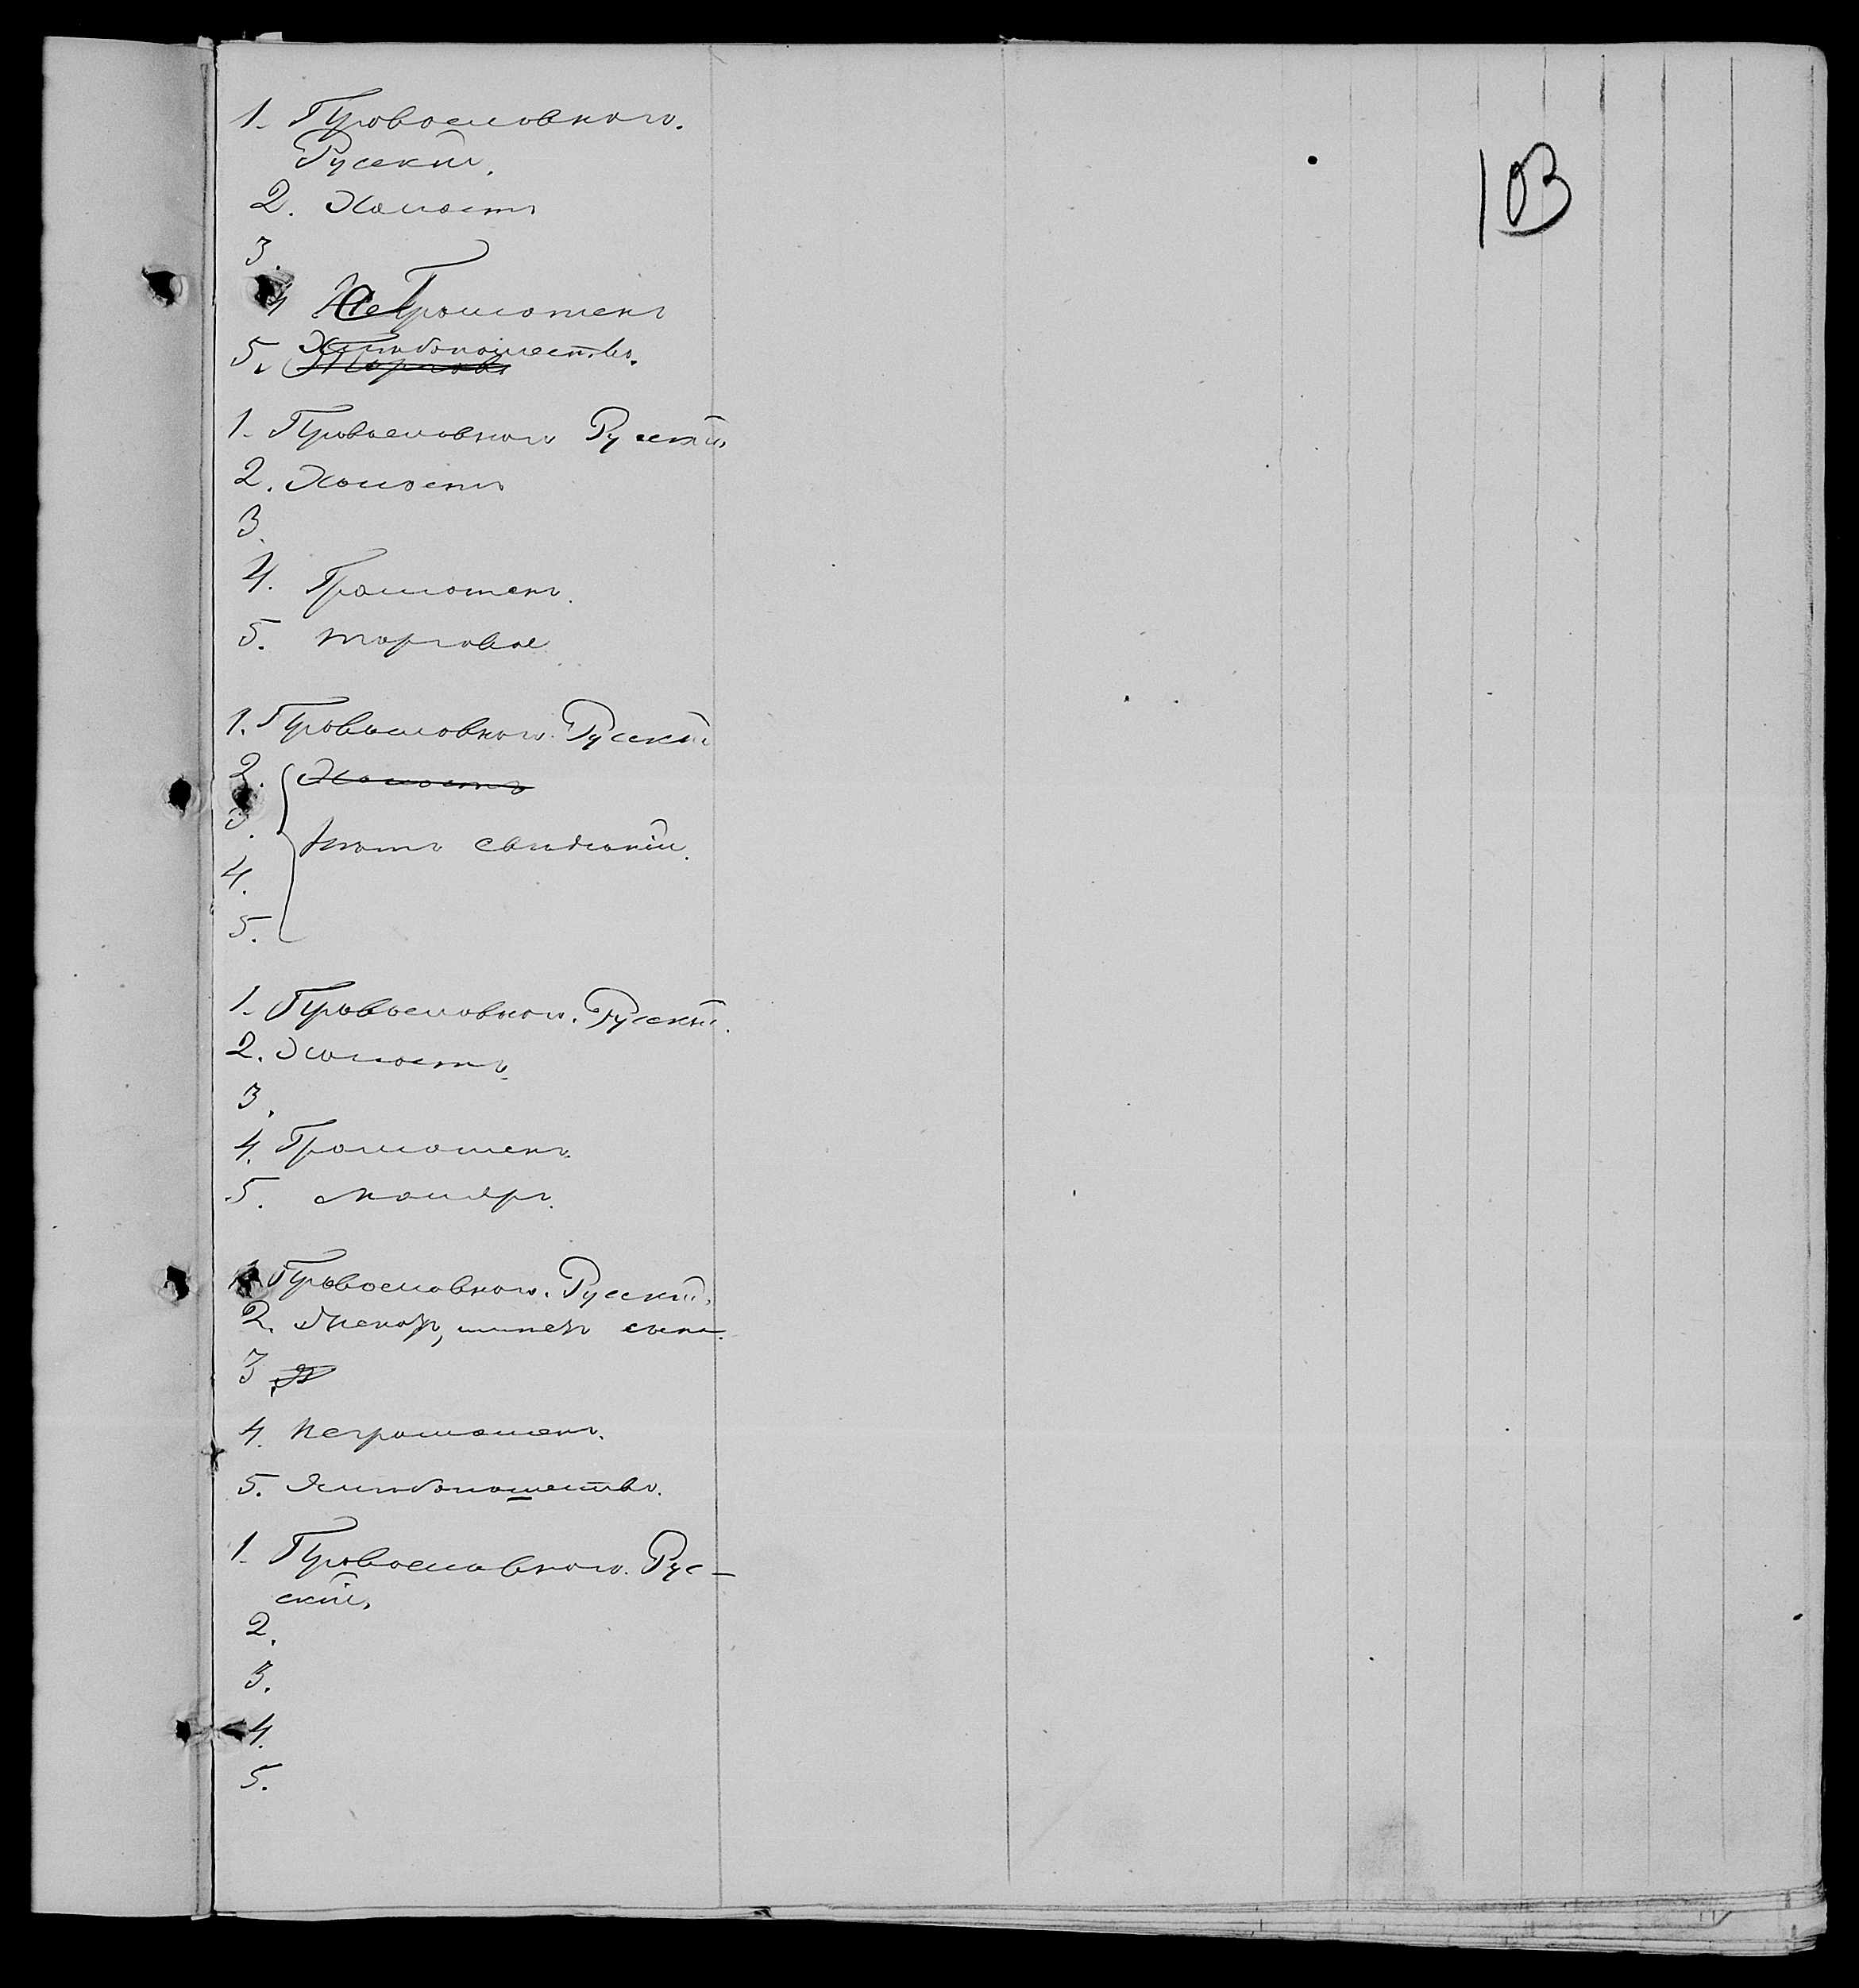 103
1. Православнаго.
Русскій.
2. Холостъ
3.
4 Неграмотенъ
5. Хлѣбопашество.
Торгов
1. Православнаго Русскій,
2. Холостъ
3.
4. Грамотенъ.
5. торговое
1. Православнаго. Русскій
2. Холостъ
3. Нѣтъ свѣдѣній.
4.
5.
1. Православнаго. Русскій.
2. Холостъ.
3.
4. Грамотенъ.
5. маляръ.
1. Православнаго. Русскій.
2. Женатъ, имѣетъ сына.
3.
4. Неграмотенъ.
5. Хлѣбопашество.
1. Православнаго. Рус-
скій,
2.
3.
4.
5.